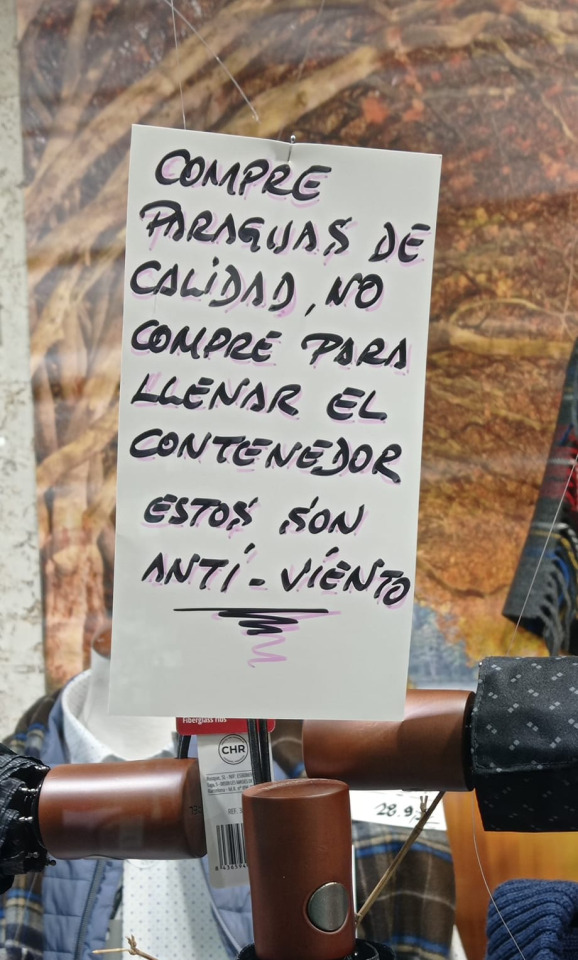 COMPRE
PARAGUAS DE
CALIDAD, NO
COMPRE PARA
LLENAR EL
CONTENEDOR
ESTOS SON
ANTI-VIENTO
Fiberglass ribs
CHR
28.9